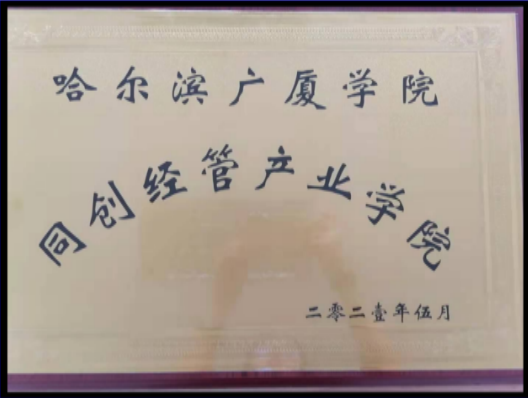 哈尔滨广厦学院
同创经管产业学院
二零二壹年伍月